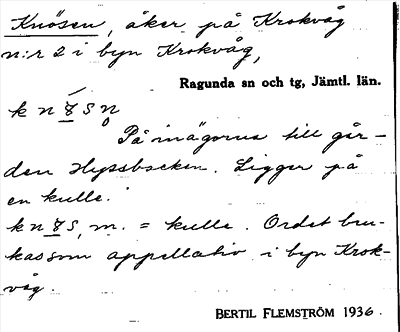 Knösen, åker på Krokvåg
n:r 2 i byn Krokvåg,
Ragunda sn och tg, Jämtl. län.
På inägorna till går-
den Hyssbacken. Ligger på
en kulle.
m. = kulle. Ordet bru-
kas som appellativ i byn Krok-
våg.
BERTIL FLEMSTRÖM 1936.